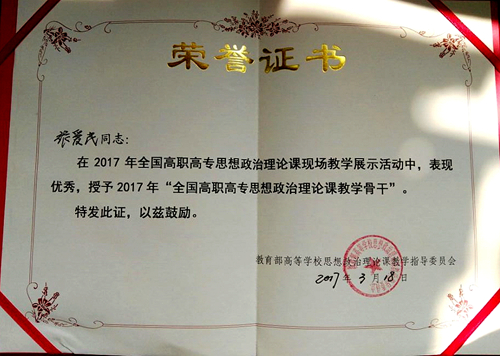 荣誉证书
张爱民同志：
在 2017 年全国高职高专思想政治理论课现场教学展示活动中，表现
优秀，授予 2017 年“全国高职高专思想政治理论课教学骨干”。
特发此证，以兹鼓励。
教育部高等学校思想政治理论课教学指导委员会
2017 年 3 月 18 日